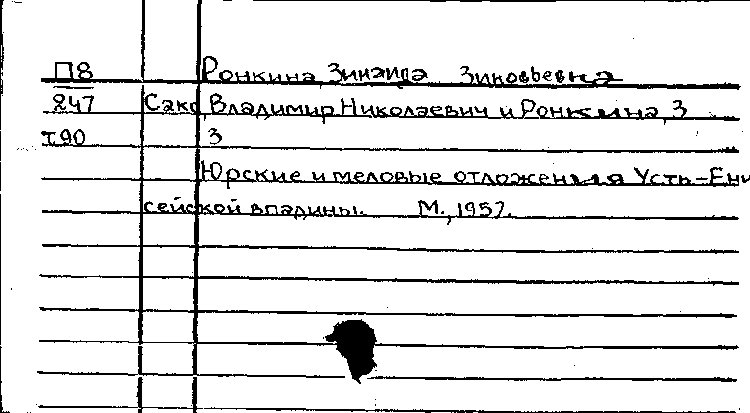 П8 Ронкина, Зинаида Зиновьевна
247 Сакс, Владимир Николаевич и Ронкина, З
т.90 З
Юрские и меловые отложения Усть-Ени
сейской впадины. М., 1957.